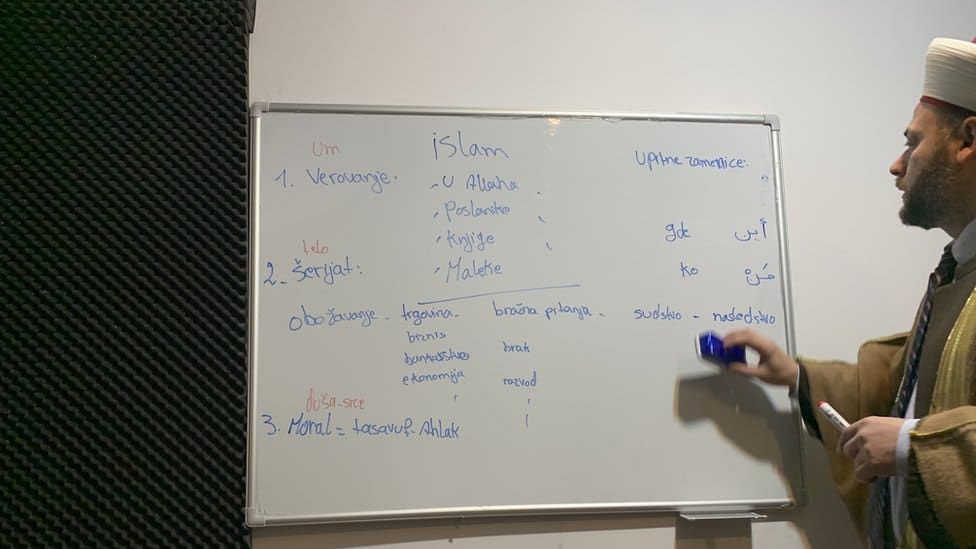 islam
Um
1. Verovanje.
- U Allaha
- Poslanike
- Knjige
- Meleke
Upitne zamenice:
gde أين
ko مَن
telo
2. Šerijat:
obožavanje - trgovina - bračna pitanja - sudstvo - nasledstvo
biznis
bankarstvo brak
ekonomija razvod
duša.srce
3. Moral = tasavuf. Ahlak